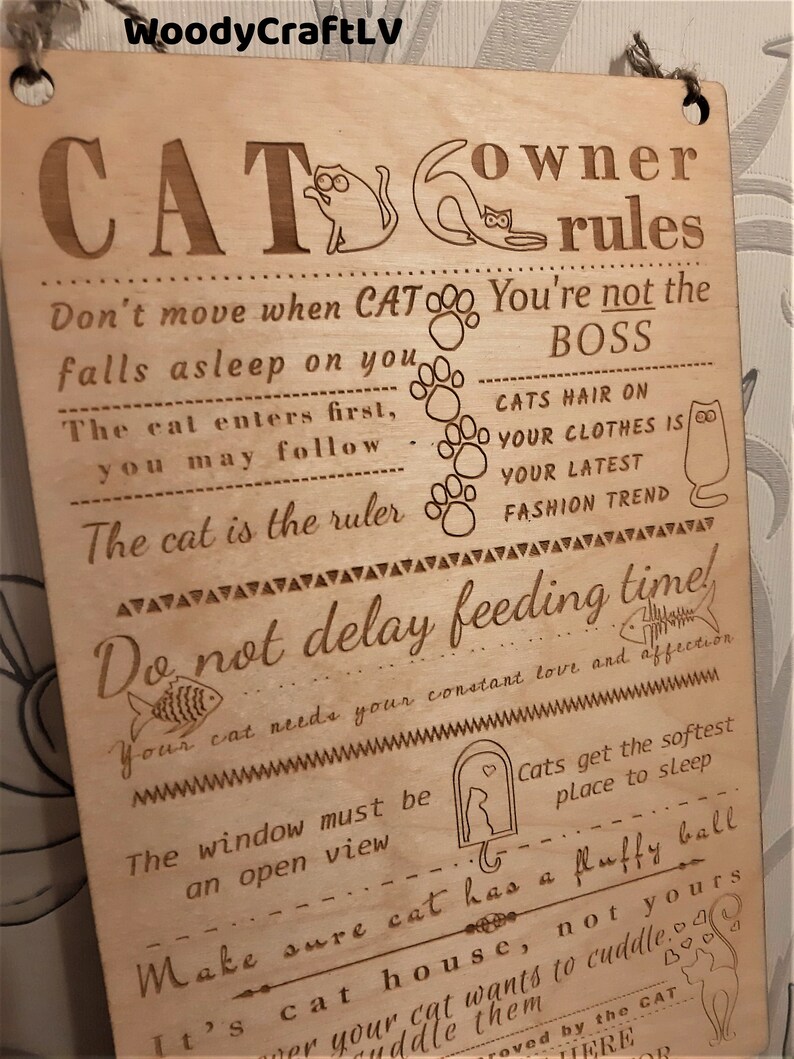 WoodyCraftLV
CAT owner
rules
Don't move when CAT
falls asleep on you
You're not the
BOSS
The cat enters first,
you may follow
CATS HAIR ON
YOUR CLOTHES IS
YOUR LATEST
FASHION TREND
The cat is the ruler
Do not delay feeding time!
Your cat needs your constant love and affection
The window must be
an open view
Cats get the softest
place to sleep
Make sure cat has a fluffy ball
It's cat house, not yours
your cat wants to cuddle
cuddle them
by the CAT
HERE